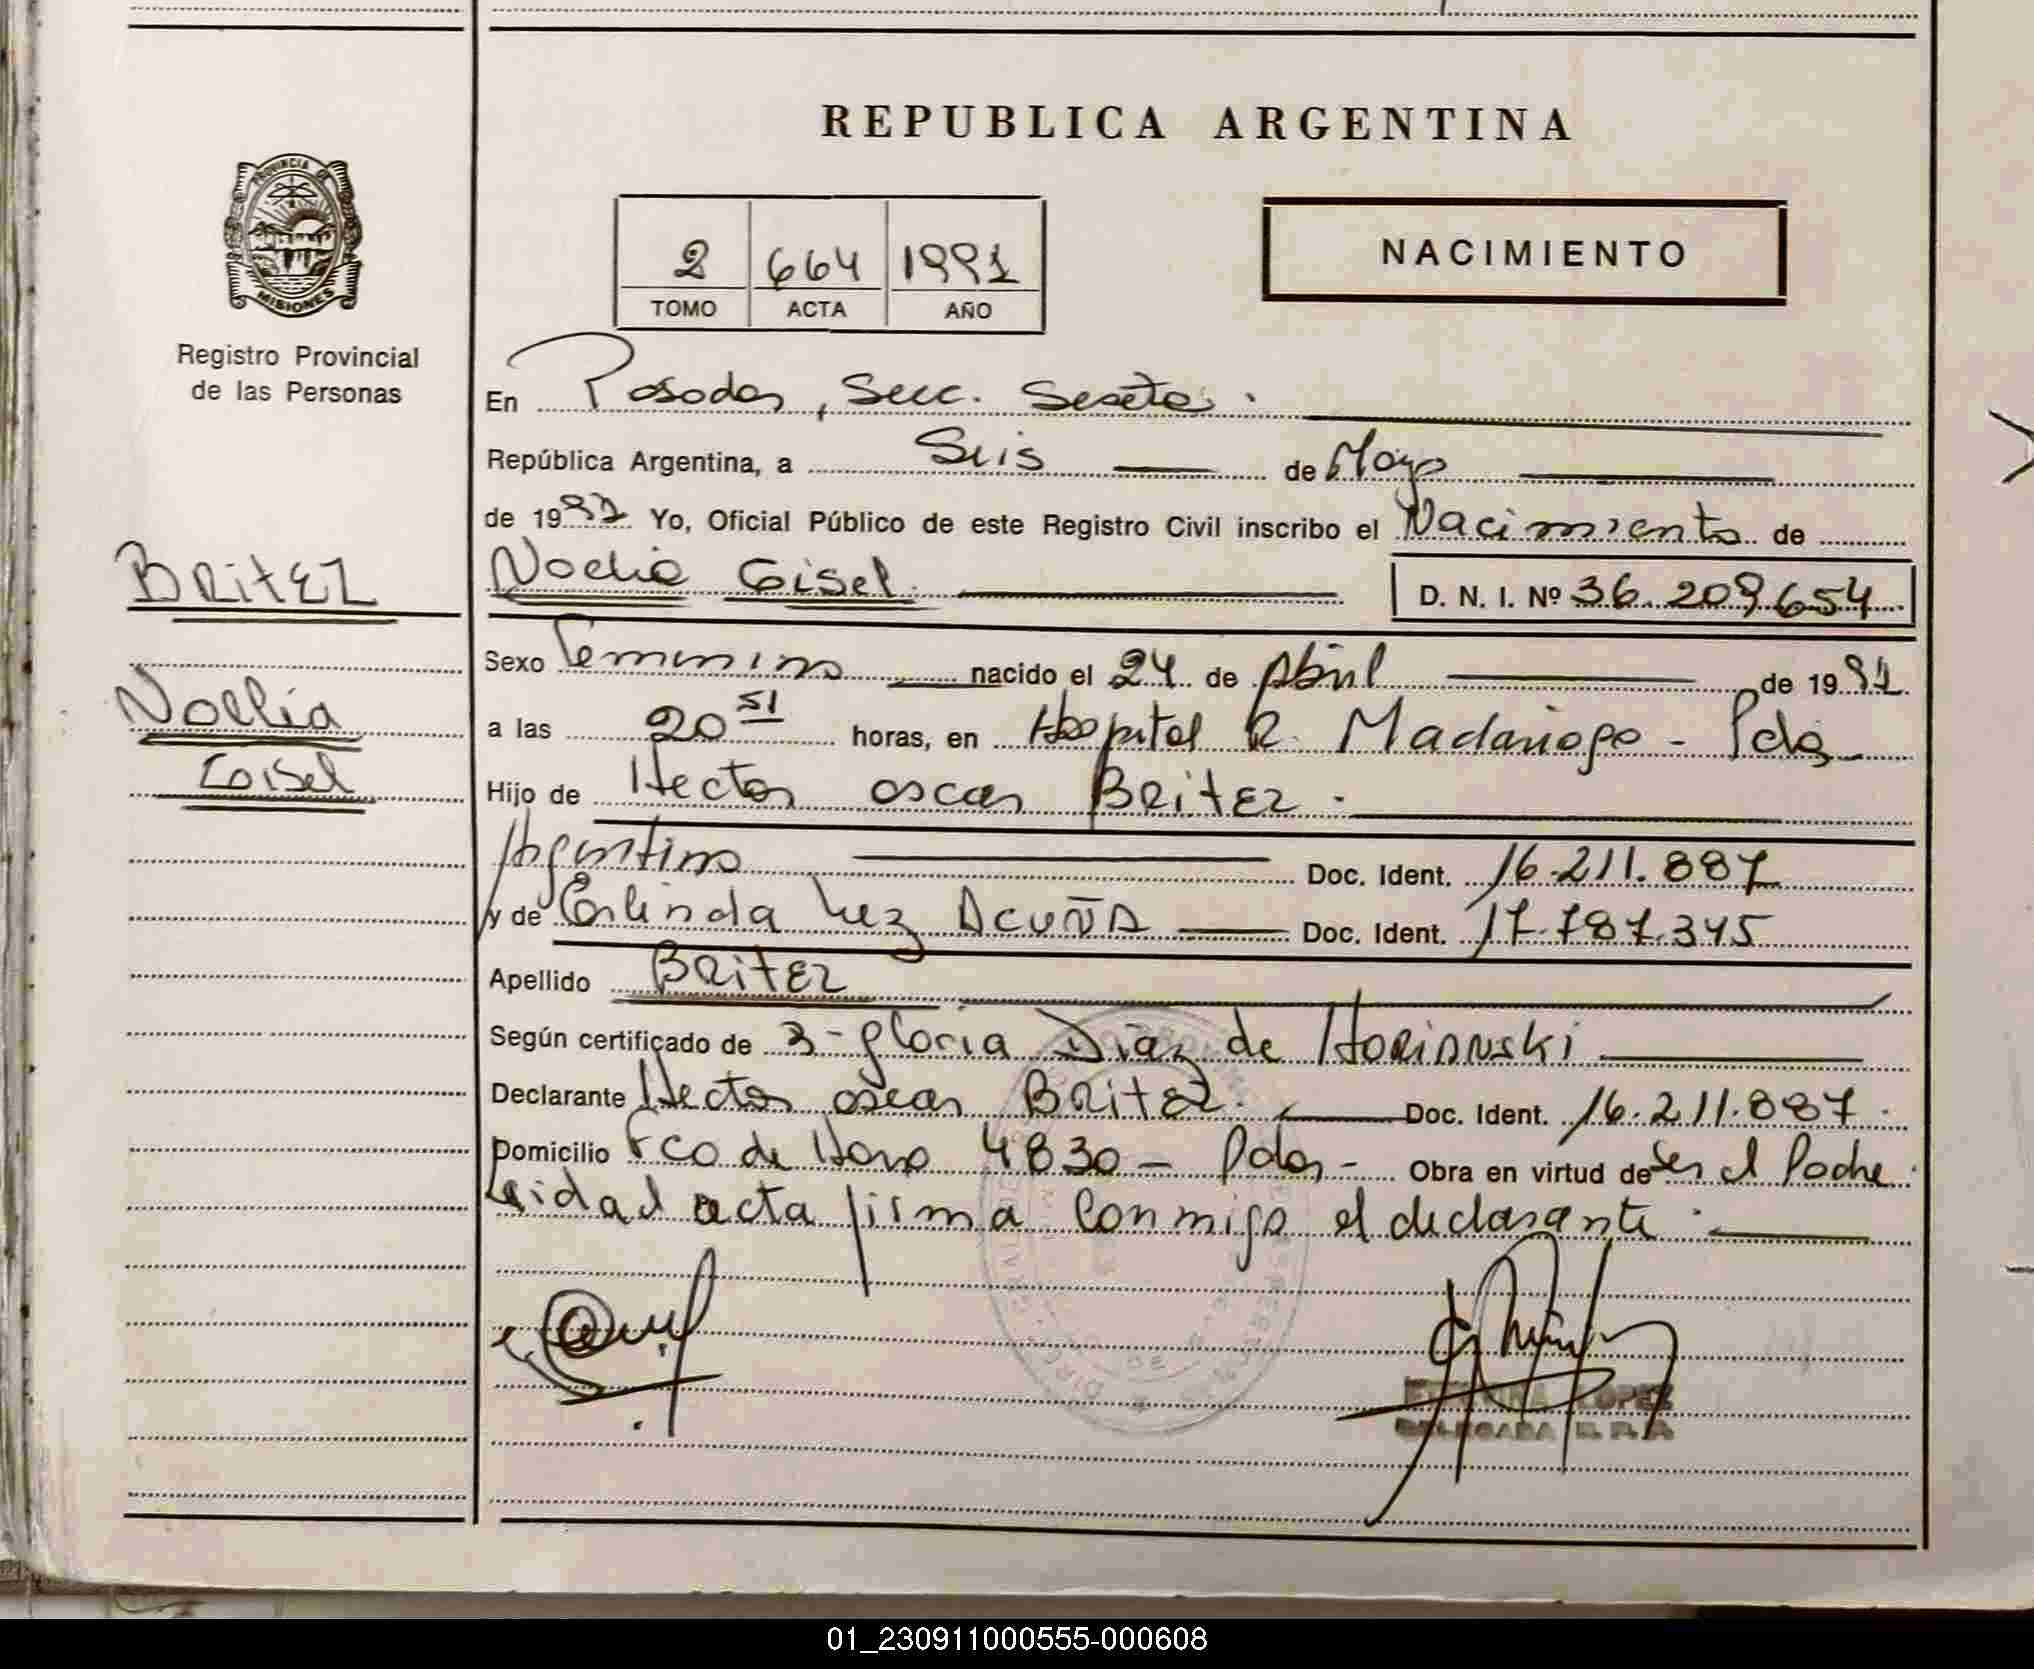 REPUBLICA ARGENTINA
PROVINCIA DE
MISIONES
Registro Provincial
de las Personas
2 664 1991
TOMO ACTA AÑO
NACIMIENTO
En Posadas, Secc. Sexta.
República Argentina, a Seis de Mayo
de 1991 Yo, Oficial Público de este Registro Civil inscribo el Nacimiento de
BRITEZ
Noelia Gisel.
D. N. I. Nº 36.209654
Sexo Femenino nacido el 24 de Abril de 1991
Noelia
a las 20 51 horas, en Hospital R. Madariaga - Pdas
Gisel
Hijo de Hector oscar BRITEZ.
Argentino Doc. Ident. 16.211.887
y de Erlinda Luz ACUÑA Doc. Ident. 17.787.345
Apellido BRITEZ
Según certificado de 3-gloria Diaz de HORIANSKI
Declarante Hector oscar BRITEZ. Doc. Ident. 16.211.887.
Domicilio Fco de Haro 4830 - Pdas - Obra en virtud de Ser el Padre.
Leida el acta firma conmigo el declarante.
LOPEZ
DELEGADA R. P. P.
01_230911000555-000608